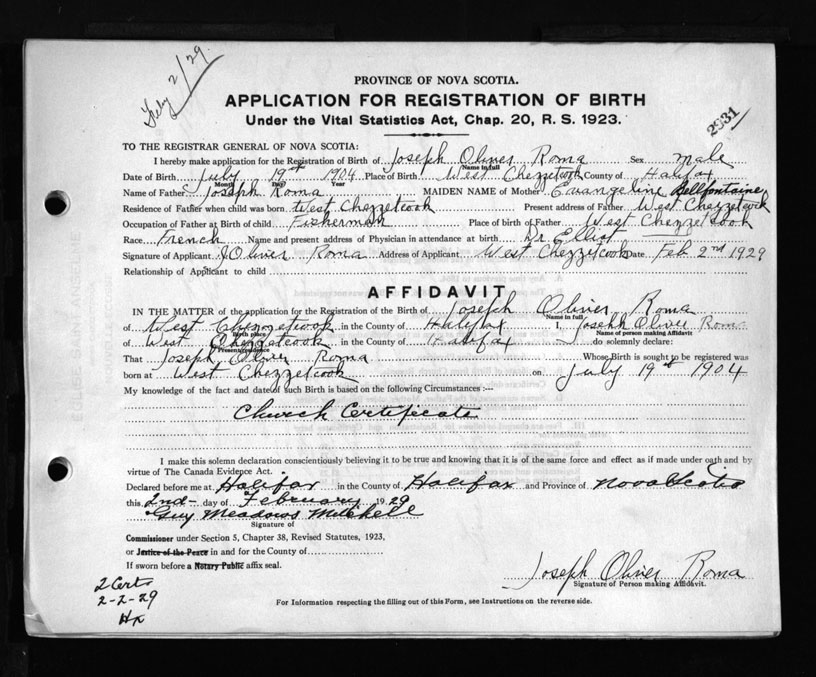 Feby 2/29.
PROVINCE OF NOVA SCOTIA.
APPLICATION FOR REGISTRATION OF BIRTH
Under the Vital Statistics Act, Chap. 20, R. S. 1923.
2931
TO THE REGISTRAR GENERAL OF NOVA SCOTIA:
I hereby make application for the Registration of Birth of Joseph Oliver Roma Sex male
Name in full
Date of Birth July 19th 1904 Place of Birth West Chezzetcook County of Halifax
Month Day Year
Name of Father Joseph Roma MAIDEN NAME of Mother Evangeline Bellfontaine
Residence of Father when child was born West Chezzetcook Present address of Father West Chezzetcook
Occupation of Father at Birth of child Fisherman Place of birth of Father West Chezzetcook
Race French Name and present address of Physician in attendance at birth Dr Elliot
Signature of Applicant J Oliver Roma Address of Applicant West Chezzetcook Date Feb 2nd 1929
Relationship of Applicant to child
AFFIDAVIT
IN THE MATTER of the application for the Registration of the Birth of Joseph Oliver Roma
Name in full
of West Chezzetcook in the County of Halifax I, Joseph Oliver Roma
Birth place Name of person making Affidavit
of West Chezzetcook in the County of Halifax do solemnly declare:
Present residence
That Joseph Oliver Roma Whose Birth is sought to be registered was
born at West Chezzetcook on July 19th 1904
My knowledge of the fact and date of such Birth is based on the following Circumstances :—
Church Certificate
I make this solemn declaration conscientiously believing it to be true and knowing that it is of the same force and effect as if made under oath and by
virtue of The Canada Evidence Act.
Declared before me at Halifax in the County of Halifax and Province of Nova Scotia
this 2nd day of February 1929
Guy Meadows Mitchell
Signature of
Commissioner under Section 5, Chapter 38, Revised Statutes, 1923,
or Justice of the Peace in and for the County of
If sworn before a Notary Public affix seal.
Joseph Oliver Roma
Signature of Person making Affidavit.
2 Cert
2-2-29
Hx
For Information respecting the filling out of this Form, see Instructions on the reverse side.